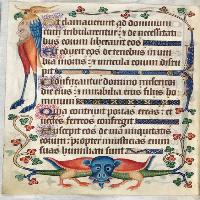 Et clamauerunt ad dominum
cum tribularentur: et de necessitati
bus eorum liberauit eos
Et eduxit eos de tenebris et um
bra mortis: et uincula eorum disru
pit
Confiteantur domino misericordie
eius: et mirabilia eius filiis ho
minum
Quia contriuit portas ereas: et
uectes ferreos confregit
Suscepit eos de uia iniquitatis
eorum: propter iniusticias enim
suas humiliati sunt